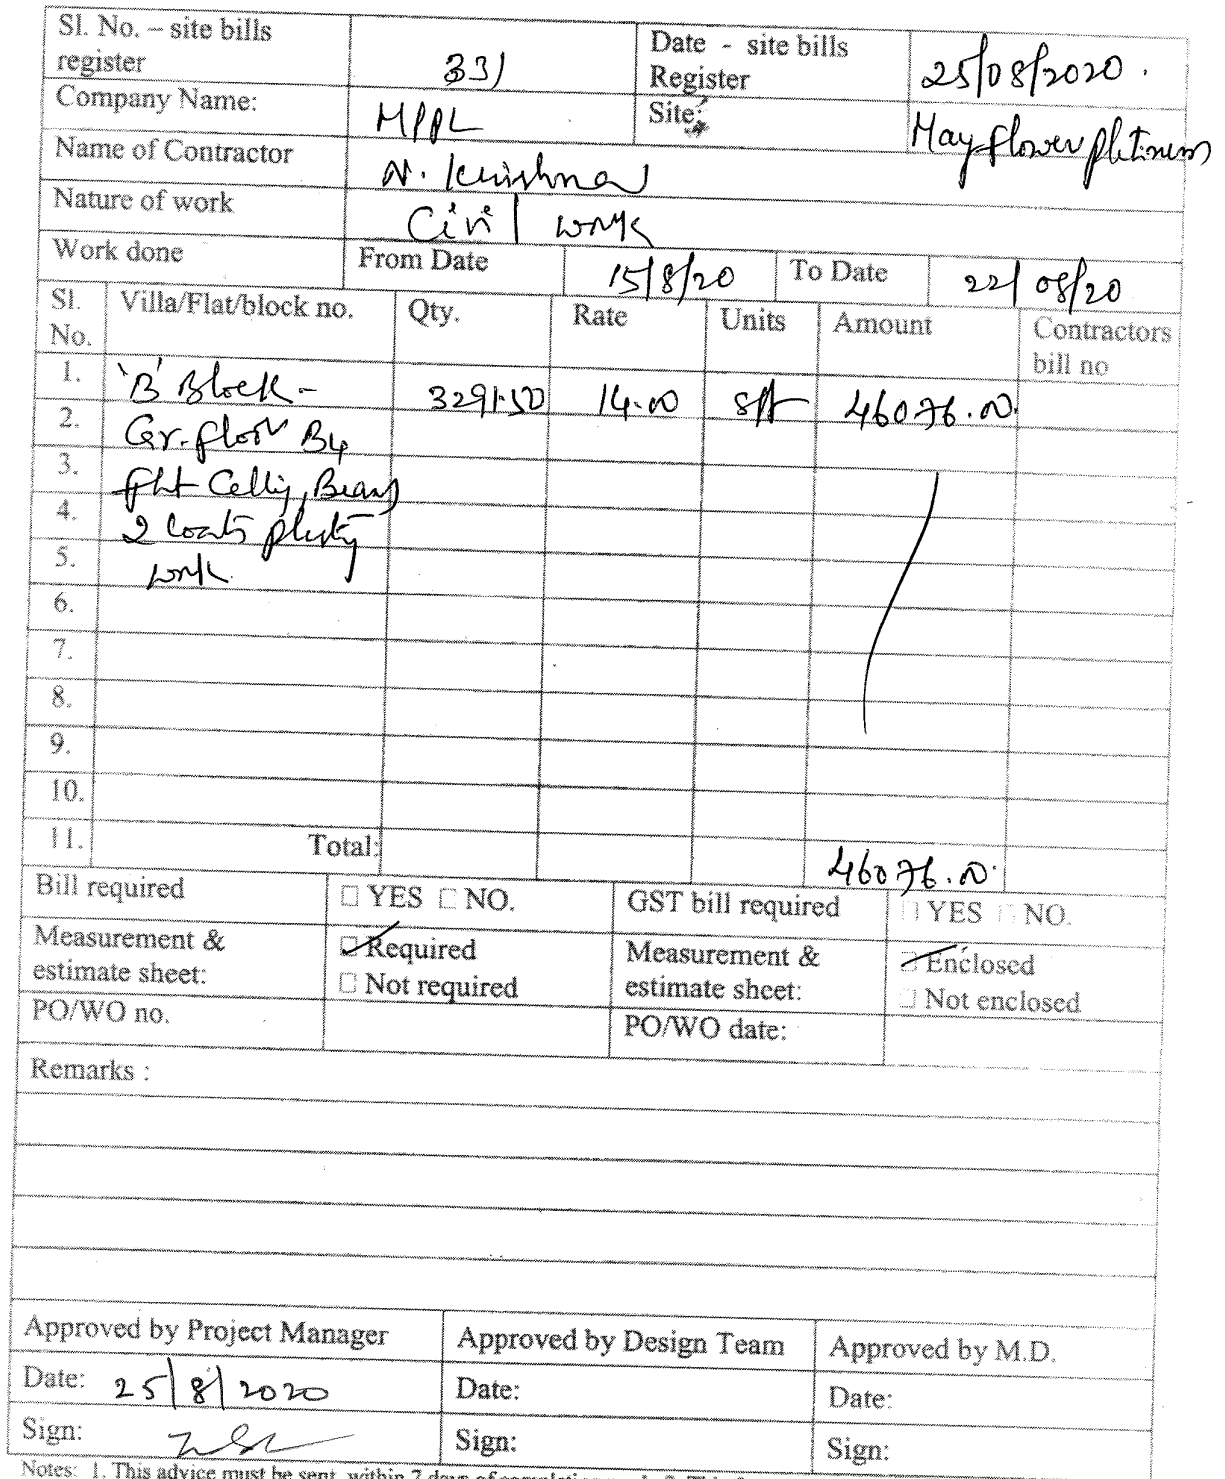 Sl. No. – site bills register 331 Date - site bills Register 25/08/2020.
Company Name: MPPL Site: Mayflower platinum
Name of Contractor N. Krishna
Nature of work Civil work
Work done From Date 15/8/20 To Date 22/08/20
Sl. No. Villa/Flat/block no. Qty. Rate Units Amount Contractors bill no
1. 'B' Block - 3291.50 14.00 sft 46076.00
2. Gr. floor B4
3. flat Celling, Beams
4. 2 Coats
5. work
6.
7.
8.
9.
10.
11. Total: 46076.00
Bill required YES NO. GST bill required YES NO.
Measurement & estimate sheet: Required Not required Measurement & estimate sheet: Enclosed Not enclosed
PO/WO no. PO/WO date:
Remarks :
Approved by Project Manager Approved by Design Team Approved by M.D.
Date: 25/8/2020 Date: Date:
Sign: Sign: Sign:
Notes: 1. This advice must be sent within 7 days of